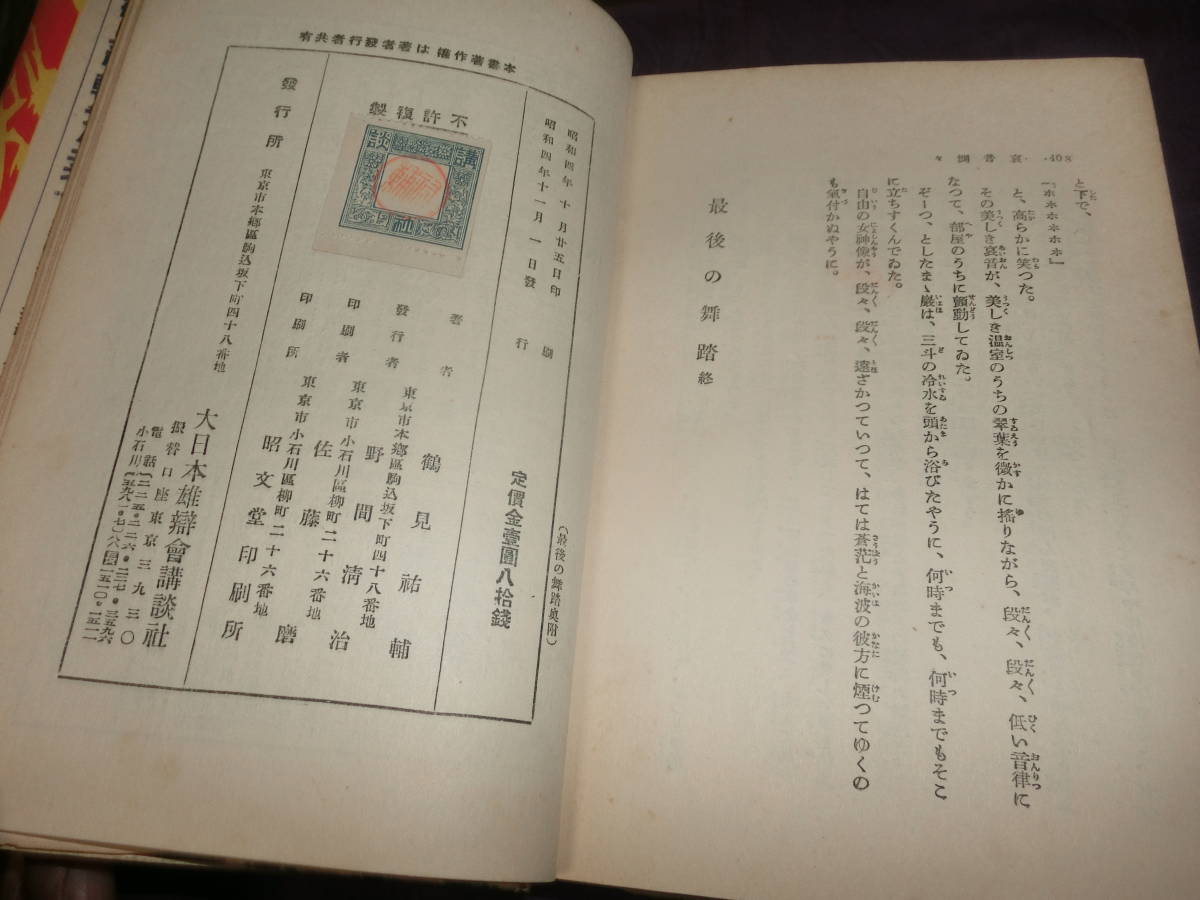 ・408・ 哀音惻々
と下で、
『ホホホホホ』
と、高らかに笑つた。
その美しき哀音が、美しき溫室のうちの翠葉を微かに搖りながら、段々、段々、低い音律に
なつて、部屋のうちに顫動してゐた。
ぞーつ、としたまゝ巖は、三斗の冷水を頭から浴びたやうに、何時までも、何時までもそこ
に立ちすくんでゐた。
自由の女神像が、段々、段々、遠ざかつていつて、はては蒼茫と海波の彼方に煙つてゆくの
も氣付かぬやうに。
最後の舞踏 終
本書著作權は著者發行者共有
(最後の舞踏奧附)
定價金壹圓八拾錢
昭和四年十月廿五日印刷
昭和四年十一月一日發行
不許複製
講談社
著者 鶴見祐輔
東京市本鄕區駒込坂下町四十八番地
發行者 野間淸治
東京市小石川區柳町二十六番地
印刷者 佐藤磨
東京市小石川區柳町二十六番地
印刷所 昭文堂印刷所
發行所 東京市本鄕區駒込坂下町四十八番地
大日本雄辯會講談社
振替口座東京三九三〇
電話
小石川